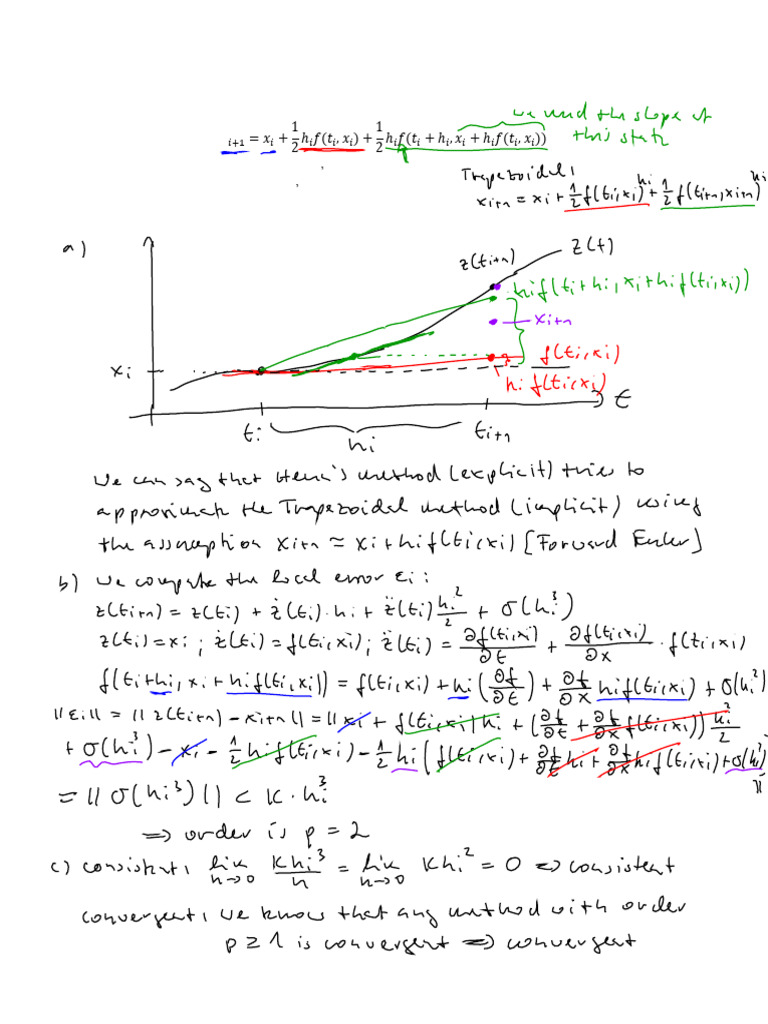 we need the slope at
this state
i+1 = xᵢ + 1/2 hᵢf(tᵢ, xᵢ) + 1/2 hᵢf(tᵢ + hᵢ, xᵢ + hᵢf(tᵢ, xᵢ))
Trapezoidal:
xᵢ₊₁ = xᵢ + 1/2 f(tᵢ,xᵢ)hᵢ + 1/2 f(tᵢ₊₁,xᵢ₊₁)hᵢ
a)
z(tᵢ₊₁)
z(t)
hᵢf(tᵢ+hᵢ, xᵢ+hᵢf(tᵢ,xᵢ))
xᵢ₊₁
f(tᵢ,xᵢ)
xᵢ
hᵢf(tᵢ,xᵢ)
t
tᵢ
hᵢ
tᵢ₊₁
We can say that Heun's method (explicit) tries to
approximate the Trapezoidal method (implicit) using
the assumption xᵢ₊₁ ≈ xᵢ+hᵢf(tᵢ,xᵢ) [Forward Euler]
b) we compute the local error εᵢ:
z(tᵢ₊₁) = z(tᵢ) + ż(tᵢ)·hᵢ + z̈(tᵢ) hᵢ²/2 + O(hᵢ³)
z(tᵢ)=xᵢ ; ż(tᵢ) = f(tᵢ,xᵢ); z̈(tᵢ) = ∂f(tᵢ,xᵢ)/∂t + ∂f(tᵢ,xᵢ)/∂x · f(tᵢ,xᵢ)
f(tᵢ+hᵢ, xᵢ+hᵢf(tᵢ,xᵢ)) = f(tᵢ,xᵢ) + hᵢ(∂f/∂t) + ∂f/∂x hᵢf(tᵢ,xᵢ) + O(hᵢ²)
||εᵢ|| = || z(tᵢ₊₁) − xᵢ₊₁ || = || xᵢ + f(tᵢ,xᵢ)hᵢ + (∂f/∂t + ∂f/∂x f(tᵢ,xᵢ)) hᵢ²/2
+ O(hᵢ³) − xᵢ − 1/2 hᵢf(tᵢ,xᵢ) − 1/2 hᵢ(f(tᵢ,xᵢ) + ∂f/∂t hᵢ + ∂f/∂x hᵢf(tᵢ,xᵢ) + O(hᵢ²)
||
= || O(hᵢ³) || < K · hᵢ³
⇒ order is p = 2
c) consistent: lim h→0 Khᵢ³/h = lim h→0 Khᵢ² = 0 ⇒ consistent
convergent: we know that any method with order
p ≥ 1 is convergent ⇒ convergent